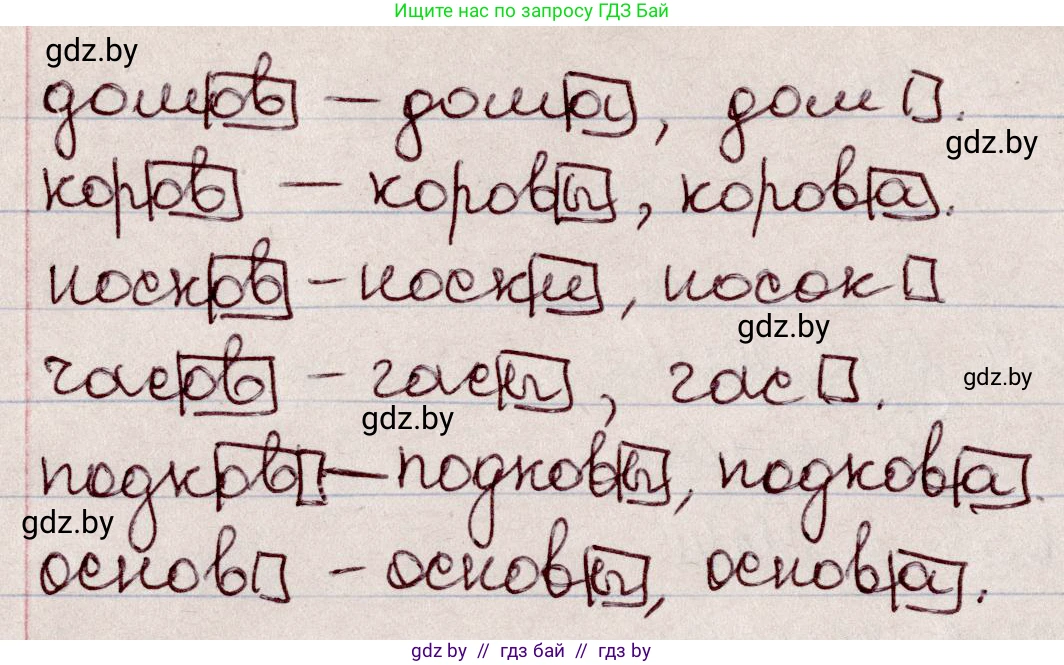 Ищите нас по запросу ГДЗ Бай
gdz.by
домов – дома, дом .
gdz.by
коров – коровы, корова.
носков – носки, носок
gdz.by
часов – часы, час .
gdz.by
gdz.by
подков – подковы, подкова
gdz.by
основ – основы, основа.
gdz by // гдз бай // gdz by